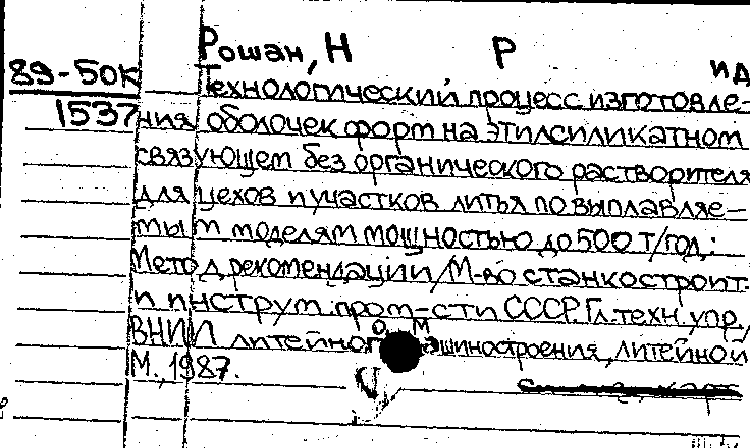 Рошан, Н Р ИД
89-50К
1537
Технологический процесс изготовле-
ния оболочек форм на этилсиликатном
связующем без органического растворителя
для цехов и участков литья по выплавляе-
мым моделям мощностью до 500 т/год:
Метод. рекомендации/М-во станкостроит.
и инструм. пром-сти СССР. Гл. техн. упр.,
ВНИИ литейного машиностроения, литейной
М., 1987.